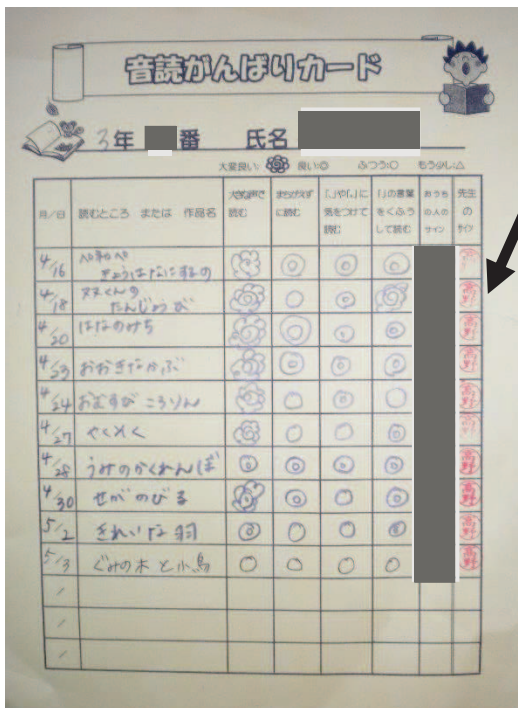 音読がんばりカード
3年 番 氏名
大変良い: 良い:◎ ふつう:○ もう少し:△
月/日 読むところ または 作品名 大きな声で読む まちがえずに読む 「、」や「。」に気をつけて読む 「」の言葉をくふうして読む おうちの人のサイン 先生のサイン
4/16 きょうはなにするの ◎ ◎ ◎
4/18 たんじょうび ○ ○ 高野
4/20 はなのみち ◎ ○ ○ 高野
4/23 おおきなかぶ ◎ ◎ ◎ 高野
4/24 おむすびころりん ○ ○ ○ 高野
4/27 やくそく ○ ○ ◎
4/28 うみのかくれんぼ ◎ ◎ ◎ ◎ 高野
4/30 せがのびる ◎ ○ ◎ 高野
5/2 きれいな羽 ◎ ○ ○ ◎ 高野
5/3 ぐみの木と小鳥 ○ ○ ○ ○ 高野
/
/
/